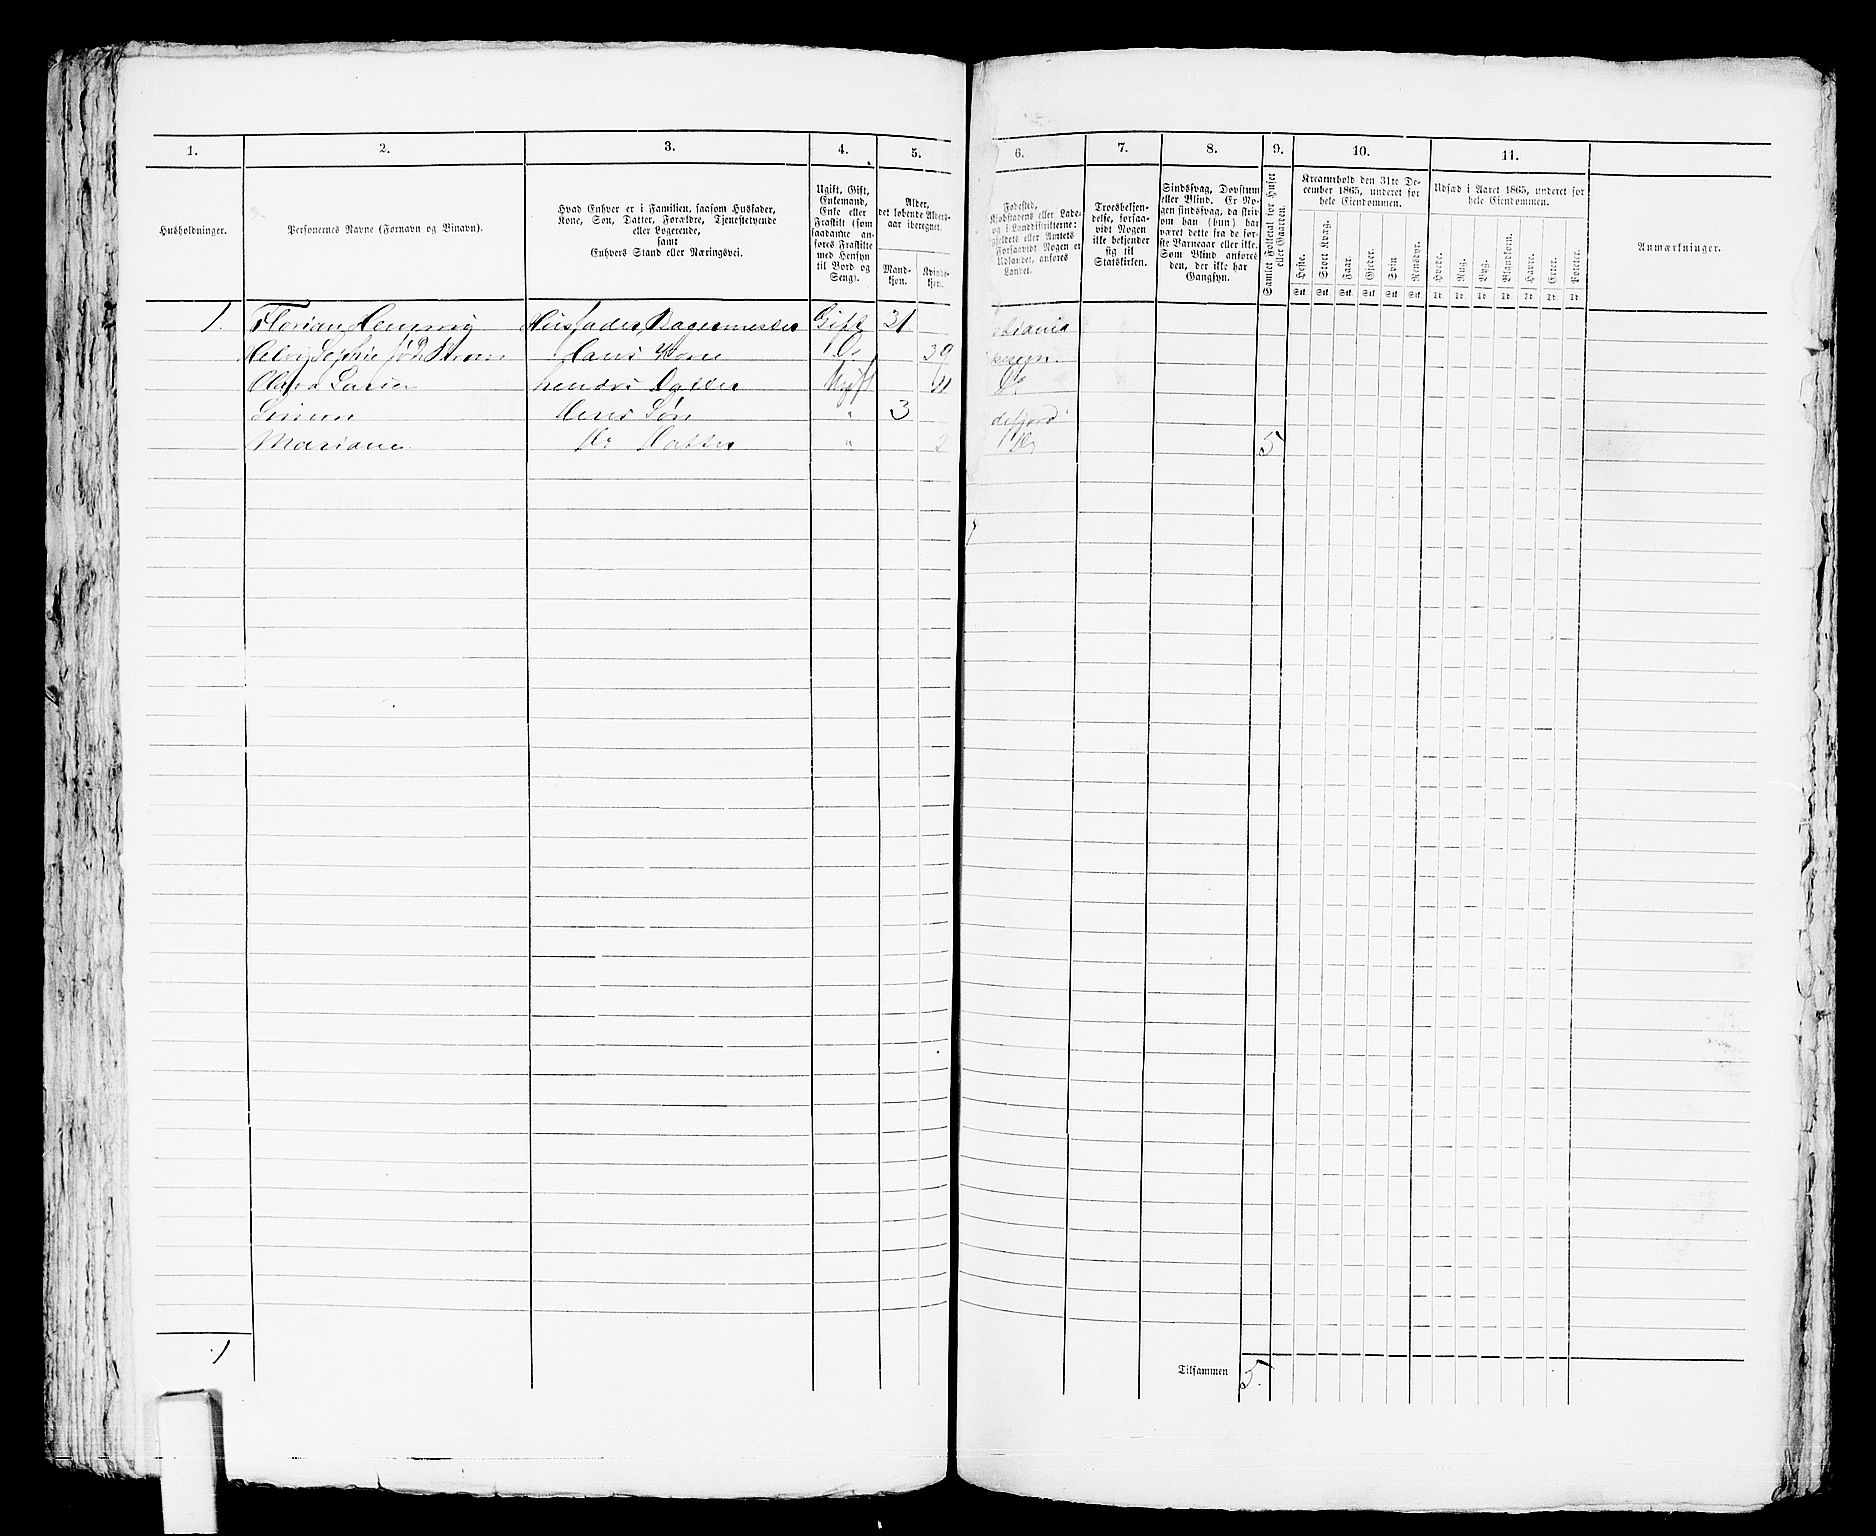 1.
2.
3.
4.
5.
Husholdninger.
Personernes Navne (Fornavn og Binavn).
Hvad Enhver er i Familien, saasom Husfader,
Kone, Søn, Datter, Forældre, Tjenestetyende
eller Logerende,
samt
Enhvers Stand eller Næringsvei.
Ugift, Gift,
Enkemand,
Enke eller
Fraskilt (som
saadanne an-
føres Fraskilte
med Hensyn
til Bord og
Seng).
Alder,
det løbende Alders-
aar iberegnet.
Mand-
kjøn.
Kvinde-
kjøn.
1. Florian Hennig Husfader, Bagermester Gift 31
Sophie Hans Kone Do 39
Clara Hendes Datter Ugift 11
Simen Deres Søn " 3
Mariane Do Datter " 2
1
6.
7.
8.
9.
10.
11.
Fødested,
Kjøbstadens eller Lade-
stedets, og i Landdistrikterne:
Præstegjeldets eller Amtets
Navn. Forsaavidt Nogen er
født i Udlandet, anføres
Landet.
Troesbekjen-
delse, forsaa-
vidt Nogen
ikke bekjender
sig til
Statskirken.
Sindssvag, Døvstum
eller Blind. Er No-
gen sindssvag, da skriv
om han (hun) har
været dette fra de før-
ste Barneaar eller ikke.
Som Blind anføres
den, der ikke har
Gangsyn.
Samlet Folketal for Huset
eller Gaarden.
Kreaturhold den 31te De-
cember 1865, underet for
hele Eiendommen.
Heste.
Stort Kvæg.
Faar.
Gjeder.
Svin.
Rensdyr.
Stk. Stk. Stk. Stk. Stk. Stk.
Udsæd i Aaret 1865, underet for
hele Eiendommen.
Hvede.
Rug.
Byg.
Blandkorn.
Havre.
Erter.
Poteter.
Td. Td. Td. Td. Td. Td. Td.
Anmærkninger.
stiania
Do
defjord
Do 5
Tilsammen 5.